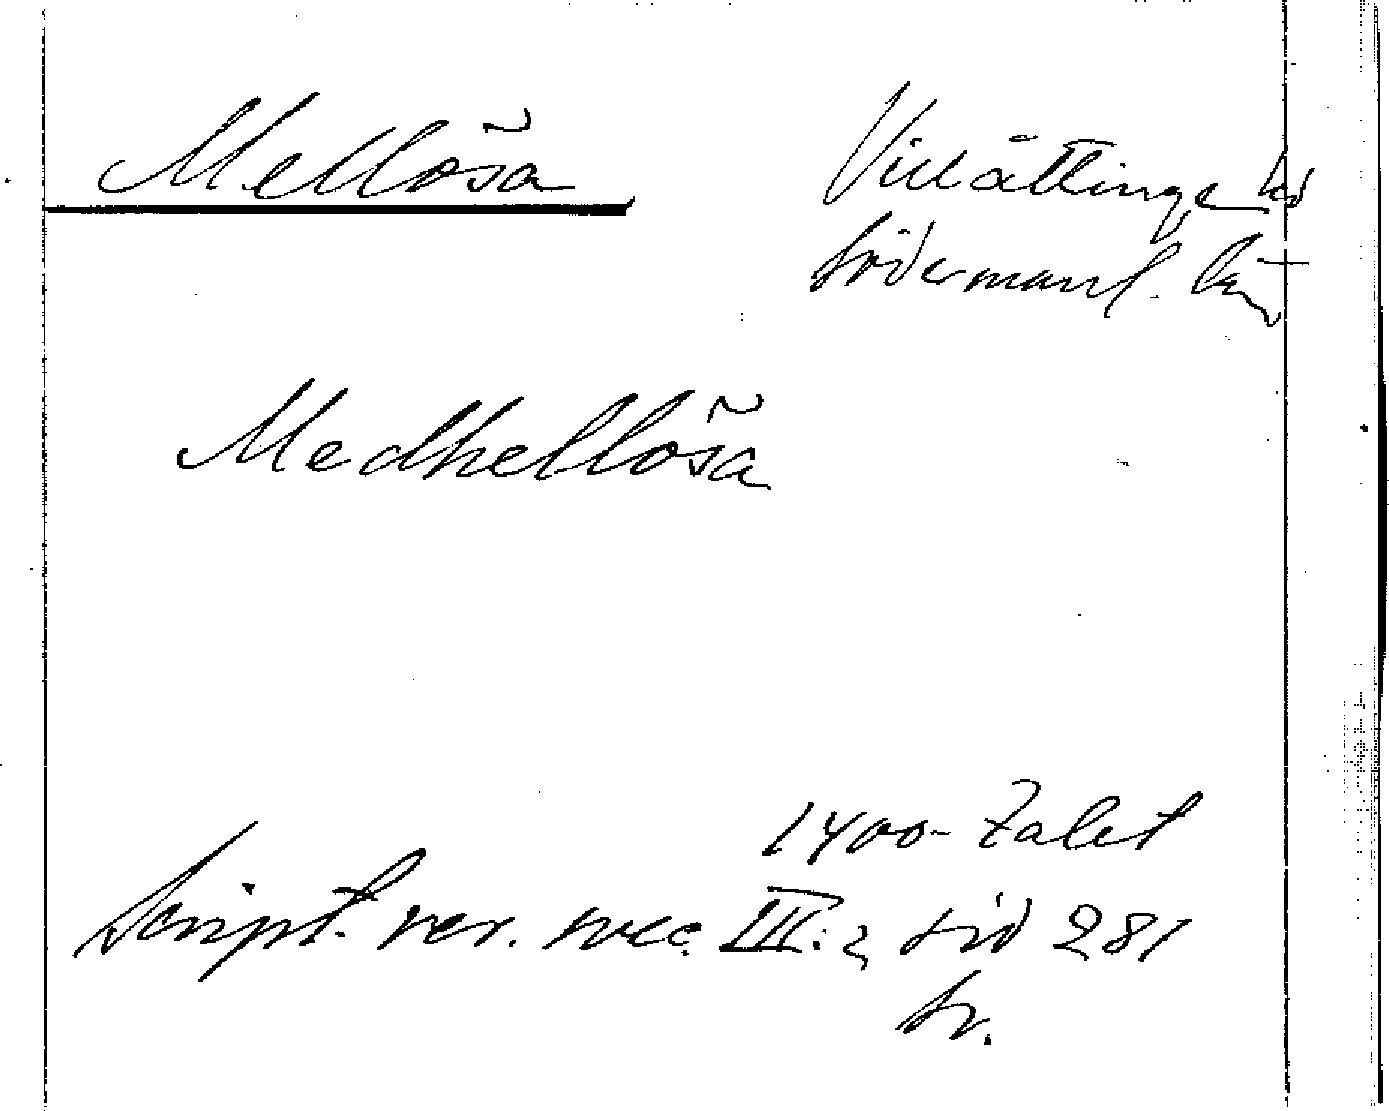 Mellösa
Villåttinge hd
Södermanl. län
Medhellösa
1400-talet
Script. rer. svec. III:2 sid 281
tr.